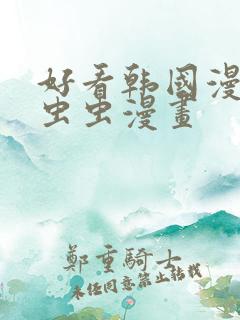 好看韩国漫
虫虫漫畫
鄭重騎士
未任同意禁止轉載